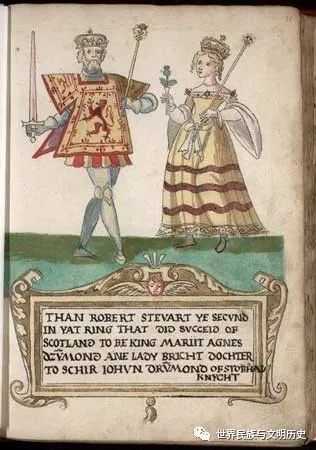 THAN ROBERT STEVART YE SECVND
IN YAT RING THAT DID SVCCEID OF
SCOTLAND TO BE KING MARIIT AGNES
DRV̄MOND ANE LADY BRICHT DOCHTER
TO SCHIR IOHVN DRV̄MOND OF STOBHAL
KNYCHT
世界民族与文明历史